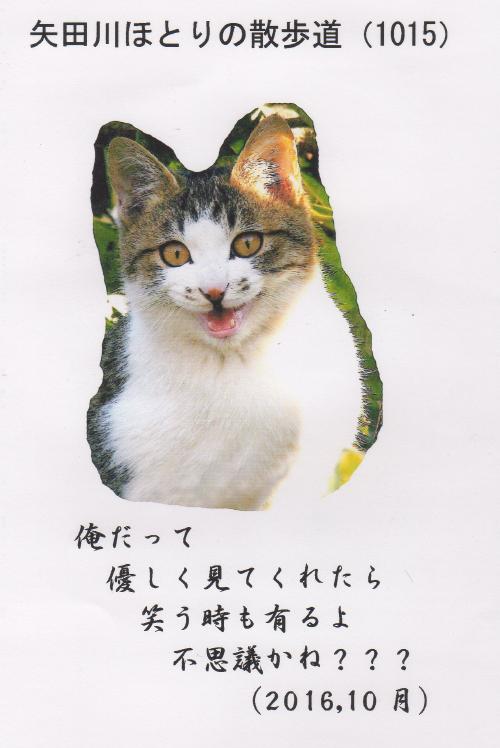 矢田川ほとりの散歩道（1015）
俺だって
優しく見てくれたら
笑う時も有るよ
不思議かね？？？
（2016,10 月）